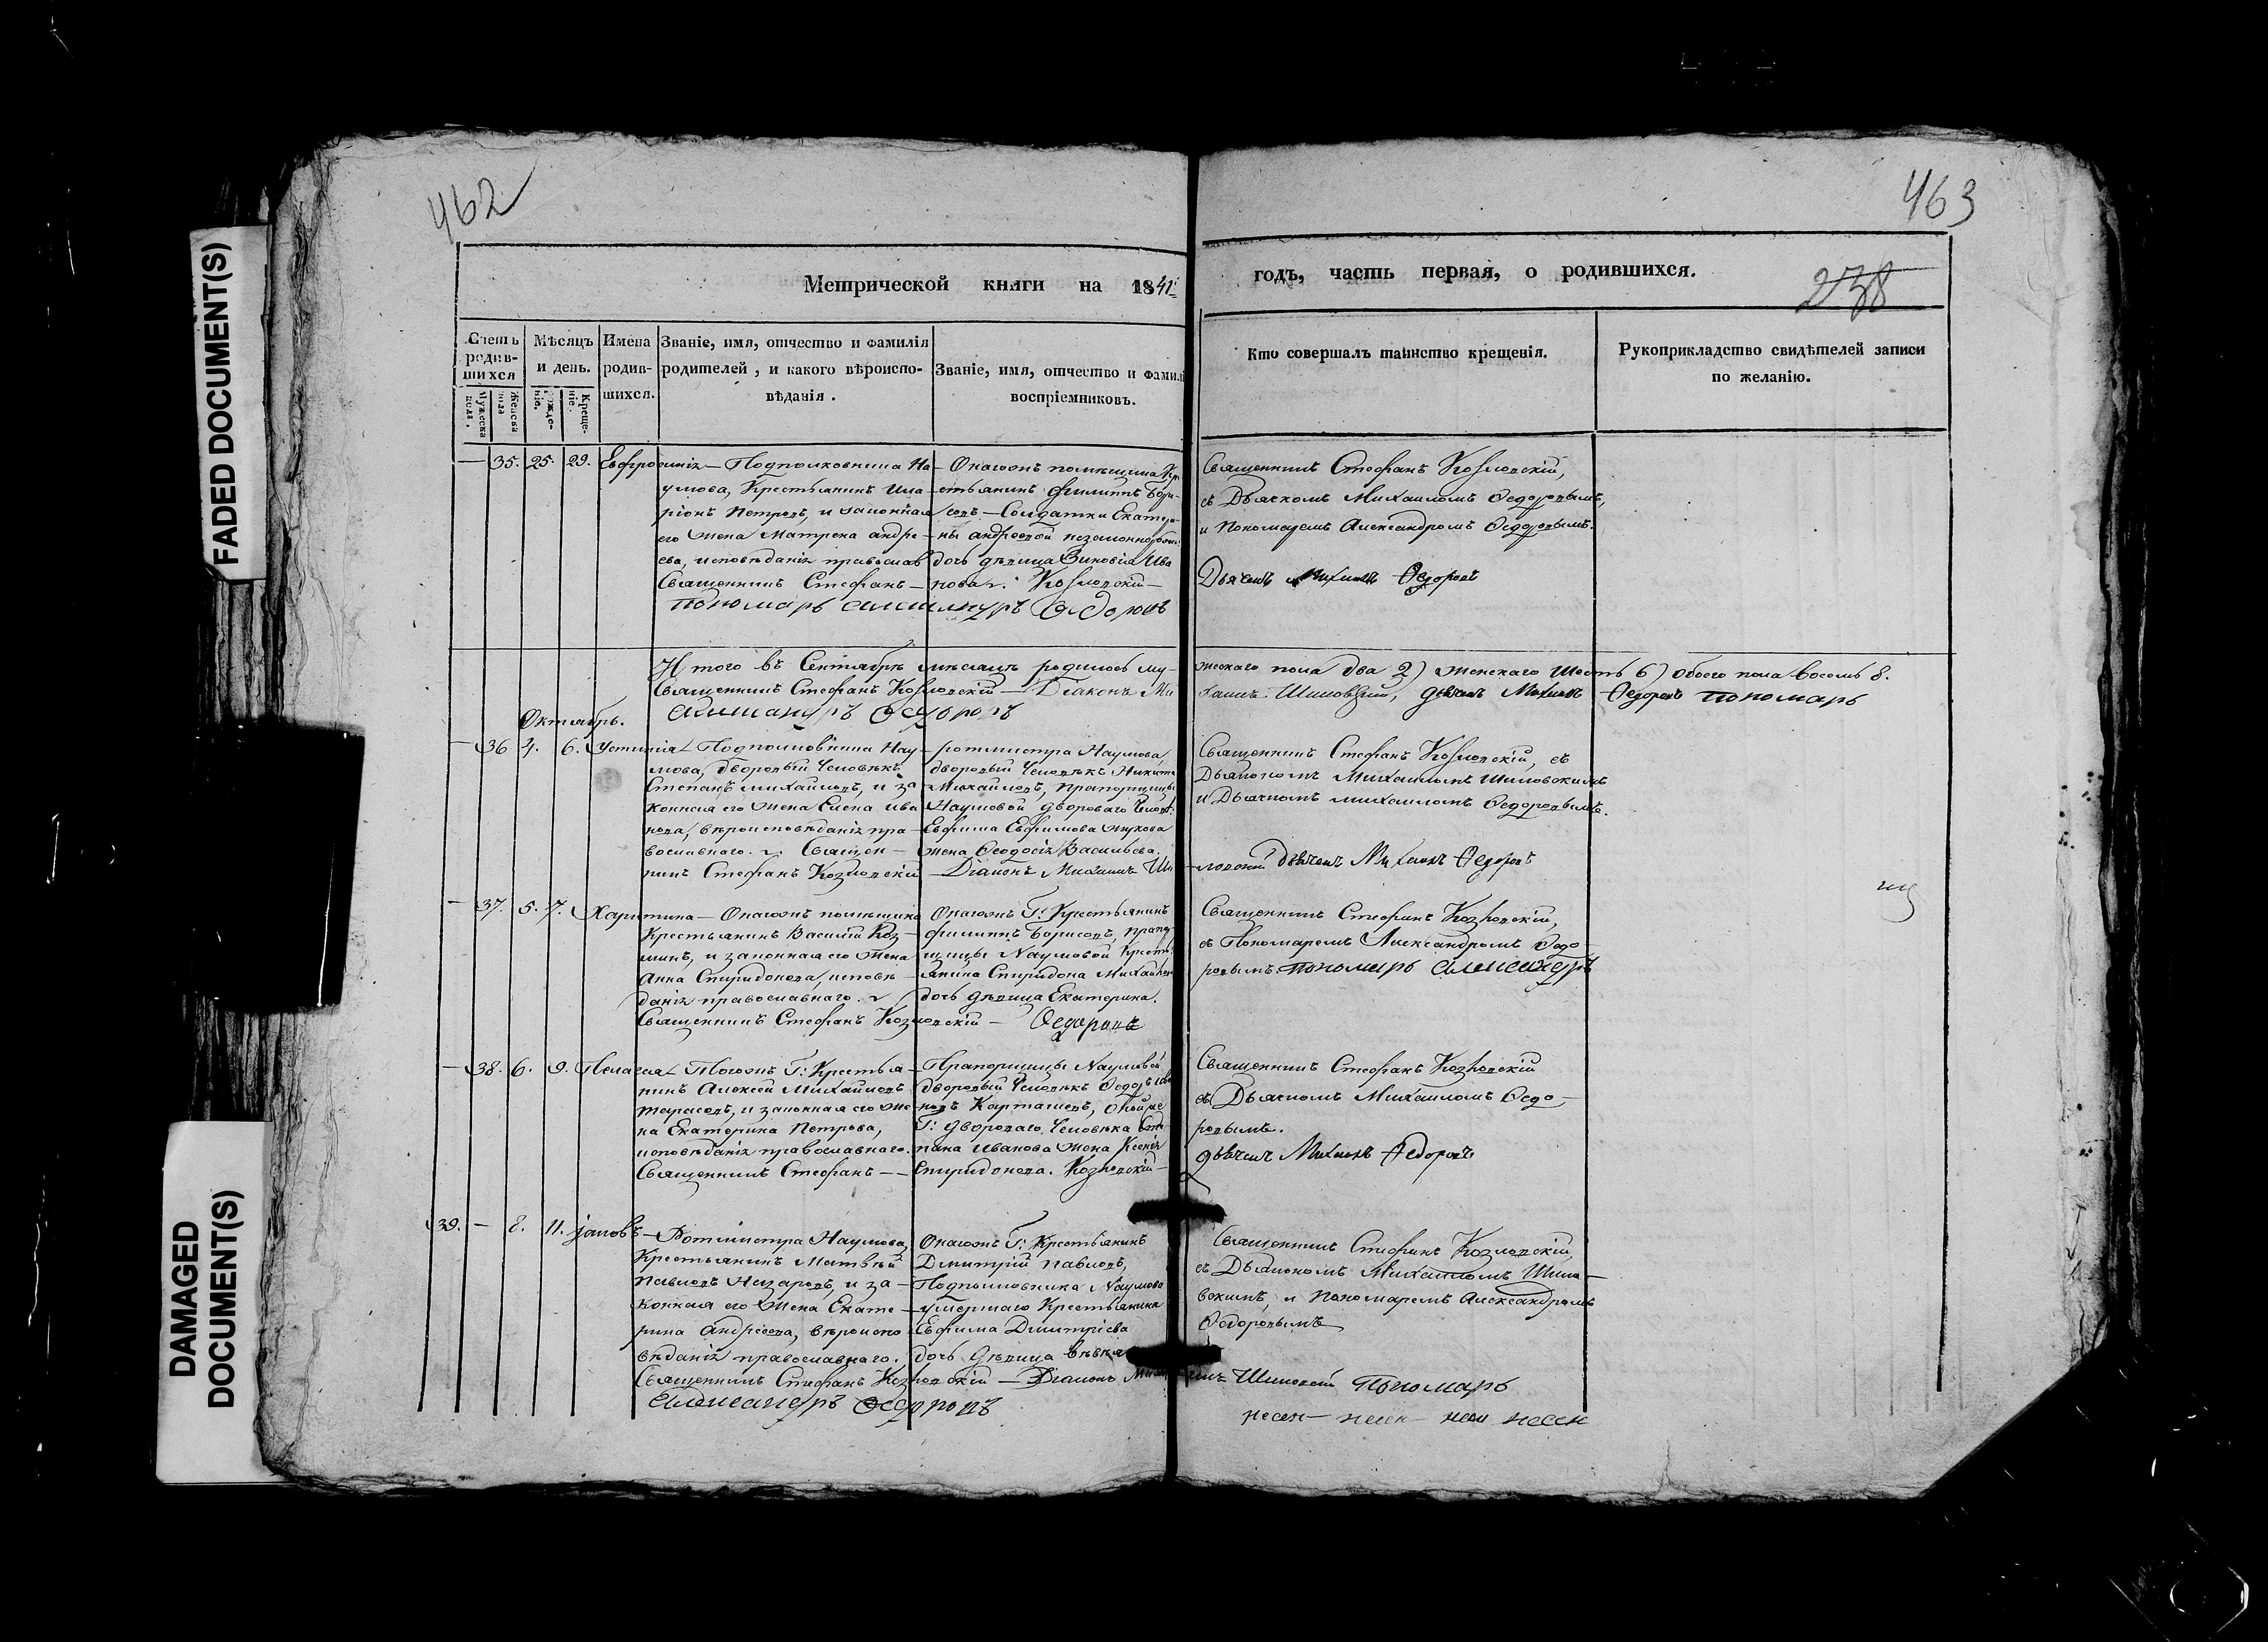 462
463
Метрической книги на 1841
годъ, часть первая, о родившихся.
238
Счетъ родив-шихся
Мужеска пола.
Женска пола
Мѣсяцъ и день.
Рожде-ніе.
Креще-ніе.
Имена родив-шихся.
Званіе, имя, отчество и фамилія
родителей, и какого вѣроиспо-
вѣданія.
Званіе, имя, отчество и фамил
воспріемниковъ.
Кто совершалъ таинство крещенія.
Рукоприкладство свидѣтелей записи
по желанію.
— 35. 25. 29. Евфросинія
Подполковника На-
умова, Крестьянинъ Ила-
ріонъ Петровъ, и законная
его жена Матрена Андре-
ева, исповѣданія православ
Священникъ Стефанъ —
Онагожъ помѣщика Кре
стьянинъ Филиппъ Бори-
совъ — Солдатки Екатери-
ны Андреевой незаконнорожд
дочь дѣвица Зиновія Ива
нова. Козловскій —
пономарь Александръ Федоровъ
Священникъ Стефанъ Козловскій,
съ Дьячкомъ Михаиломъ Федоровымъ,
и Пономаремъ Александромъ Федоровымъ.
Дьячекъ Михаилъ Федоровъ
Итого въ Сентябрѣ мѣсяцѣ родилось му-
жескаго пола два 2) женскаго Шесть 6) обоего пола восемь 8.
Священникъ Стефанъ Козловскій — Діаконъ Ми
хаилъ Шиловскій, дьячекъ Михаилъ Федоровъ пономарь
Александръ Федоровъ
Октябрь.
— 36 4. 6. Устинія
Подполковника Нау-
мова, дворовый человѣкъ
Степанъ Михайловъ, и за-
конная его жена Елена Ива
нова, вѣроисповѣданія пра-
вославнаго. Священ-
никъ Стефанъ Козловскій
ротмистра Наумова,
дворовый человѣкъ Никита
Михайловъ, Прапорщицы
Наумовой двороваго человѣ
Евфима Евфимова Жукова
жена Феодосія Васильева.
Діаконъ Михаилъ Ши
Священникъ Стефанъ Козловскій, съ
Дьякономъ Михаиломъ Шиловскимъ
и Дьячкомъ Михаиломъ Федоровымъ.
ловскій дьячекъ Михаилъ Федоровъ
— 37. 5. 7. Харитина
Онагожъ помѣщика
Крестьянинъ Василій Коз-
минъ, и законная его жена
Анна Спиридонова, исповѣ-
данія православнаго.
Священникъ Стефанъ Козловскій —
Онагожъ Г: Крестьянинъ
Филиппъ Борисовъ, Прапор
щицы Наумовой Кресть
янина Спиридона Михайлов
дочь дѣвица Екатерина.
Федоровъ
Священникъ Стефанъ Козловскій,
съ Пономаремъ Александромъ Федо-
ровымъ пономарь Александръ
— 38. 6. 9. Пелагея
Тогожъ Г: Крестья
нинъ Алексей Михайловъ
Тарасовъ, и законная его же
на Екатерина Петрова,
исповѣданія православнаго.
Священникъ Стефанъ —
Прапорщицы Наумовой
дворовый человѣкъ Федоръ Ива
новъ Карташевъ, Онойже
Г: двороваго человѣка Сте
пана Иванова жена Ксенія
Спиридонова. Козловскій —
Священникъ Стефанъ Козловскій
съ Дьячкомъ Михаиломъ Федо-
ровымъ.
дьячекъ Михаилъ Федоровъ
39. — 8. 11. Іаковъ
Ротмистра Наумова,
Крестьянинъ Матвѣй
Павловъ Назаровъ, и за-
конная его жена Екате-
рина Андреева, вѣроиспо
вѣданія православнаго.
Священникъ Стефанъ Козловскій — Діаконъ Миха
Онагожъ Г: Крестьянинъ
Дмитрій Павловъ,
Подполковника Наумова
умершаго Крестьянина
Евфима Дмитріева
дочь дѣвица
Священникъ Стефанъ Козловскій,
съ Дьякономъ Михаиломъ Шило-
вскимъ, и Пономаремъ Александромъ
Федоровымъ
илъ Шиловскій Пономарь
Александръ Федоровъ
FADED DOCUMENT(S)
DAMAGED DOCUMENT(S)